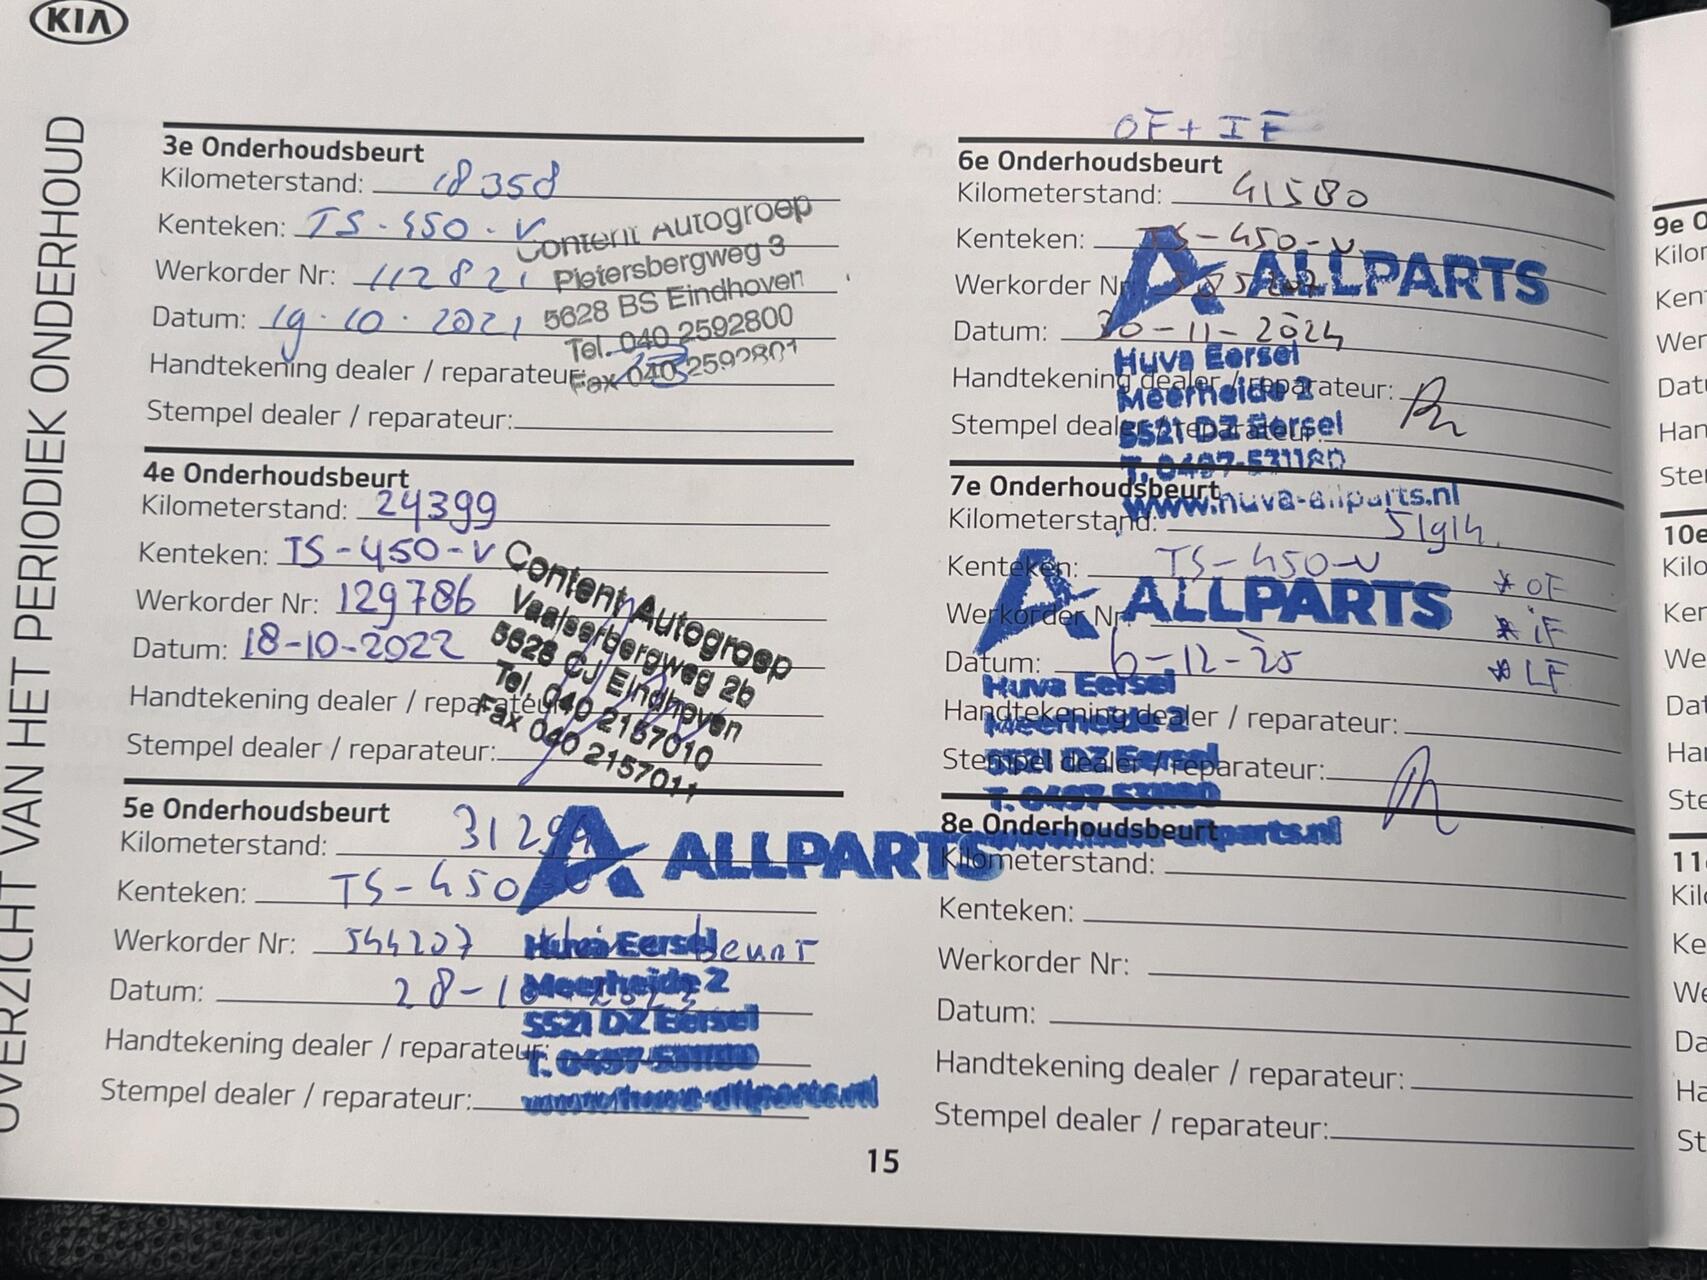 KIA
OVERZICHT VAN HET PERIODIEK ONDERHOUD
3e Onderhoudsbeurt
Kilometerstand: 18358
Kenteken: TS-450-V
Werkorder Nr: 112821
Datum: 19.10.2021
Handtekening dealer / reparateur:
Stempel dealer / reparateur:
Content Autogroep
Pietersbergweg 3
5628 BS Eindhoven
Tel. 040 2592800
Fax 040 2592801
4e Onderhoudsbeurt
Kilometerstand: 24399
Kenteken: TS-450-V
Werkorder Nr: 129786
Datum: 18-10-2022
Handtekening dealer / reparateur:
Stempel dealer / reparateur:
Content Autogroep
Vaalserbergweg 2b
5628 CJ Eindhoven
Tel. 040 2157010
Fax 040 2157011
5e Onderhoudsbeurt
Kilometerstand:
Kenteken: TS-450
Werkorder Nr: 544207 beurt
Datum:
Handtekening dealer / reparateur:
Stempel dealer / reparateur:
ALLPARTS
Huva Eersel
Meerheide 2
5521 DZ Eersel
T. 0497-531180
www.huva-allparts.nl
OF + IF
6e Onderhoudsbeurt
Kilometerstand: 41580
Kenteken: TS-450-V
Werkorder Nr
Datum: 30-11-2024
Handtekening dealer / reparateur:
Stempel dealer / reparateur:
ALLPARTS
Huva Eersel
Meerheide 2
5521 DZ Eersel
T. 0497-531180
www.huva-allparts.nl
7e Onderhoudsbeurt
Kilometerstand: 51914
Kenteken: TS-450-V
Werkorder Nr:
Datum: 6-12-25
Handtekening dealer / reparateur:
Stempel dealer / reparateur:
* OF
* iF
* LF
ALLPARTS
Huva Eersel
Meerheide 2
5521 DZ Eersel
T. 0497-531180
www.huva-allparts.nl
8e Onderhoudsbeurt
Kilometerstand:
Kenteken:
Werkorder Nr:
Datum:
Handtekening dealer / reparateur:
Stempel dealer / reparateur:
15
9e O
Kilor
Kent
Wer
Datu
Han
Ste
10e
Kilo
Ker
We
Dat
Ha
Ste
11
Kil
Ke
We
Da
Ha
St